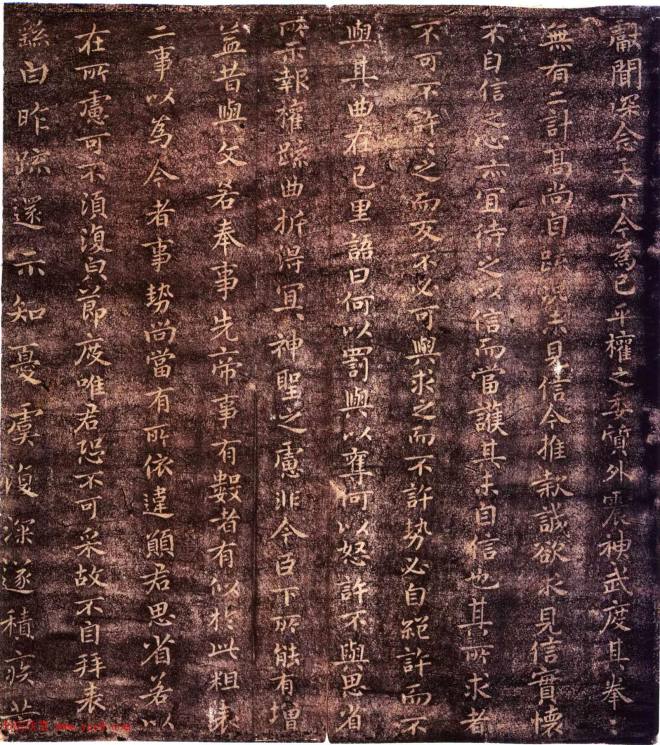 臨聞深念天下今為已平權之委質外震神武度其拳〻
無有二計高尚自疏況未見信今推款誠欲求見信實懷
不自信之心亦宜待之以信而當護其未自信也其所求者
不可不許〻之而反不必可與求之而不許勢必自絕許而不
與其曲在己里語曰何以罰與以奪何以怒許不與思省
所示報權疏曲折得冥神聖之慮非今臣下所能有增
益昔與文若奉事先帝事有數者有似於此粗表
二事以為今者事勢尚當有所依違願君思省若以
在所慮可不須復白節度唯君恐不可采故不自拜表
繇白昨疏還示知憂虞復深遂積疾苦